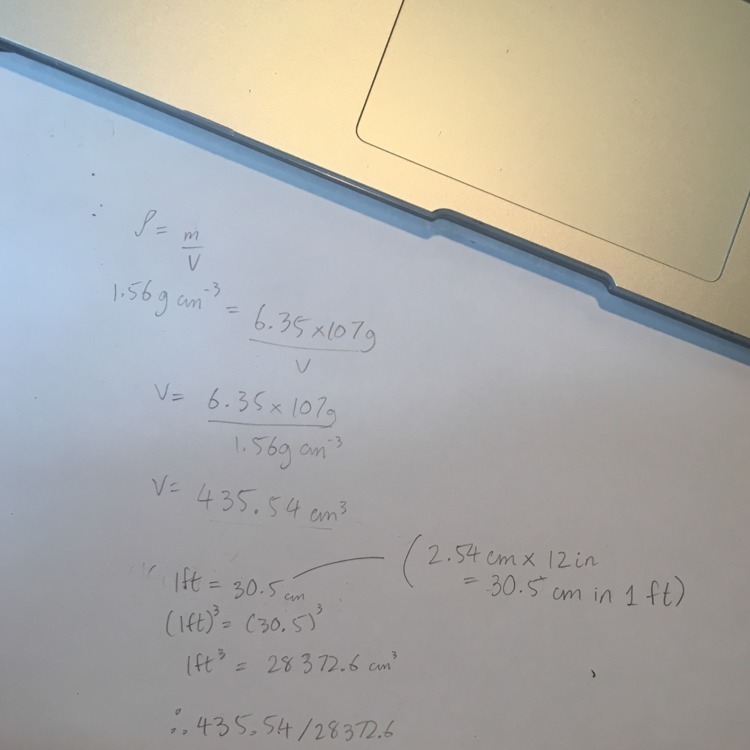 ∴
ρ = m/V
1.56g cm⁻³ = 6.35×107g/V
V= 6.35×107g/1.56g cm⁻³
V= 435.54 cm³
1ft = 30.5 cm (2.54 cm x 12 in
= 30.5 cm in 1 ft)
(1ft)³ = (30.5)³
1ft³ = 28372.6 cm³
∴ 435.54/28372.6